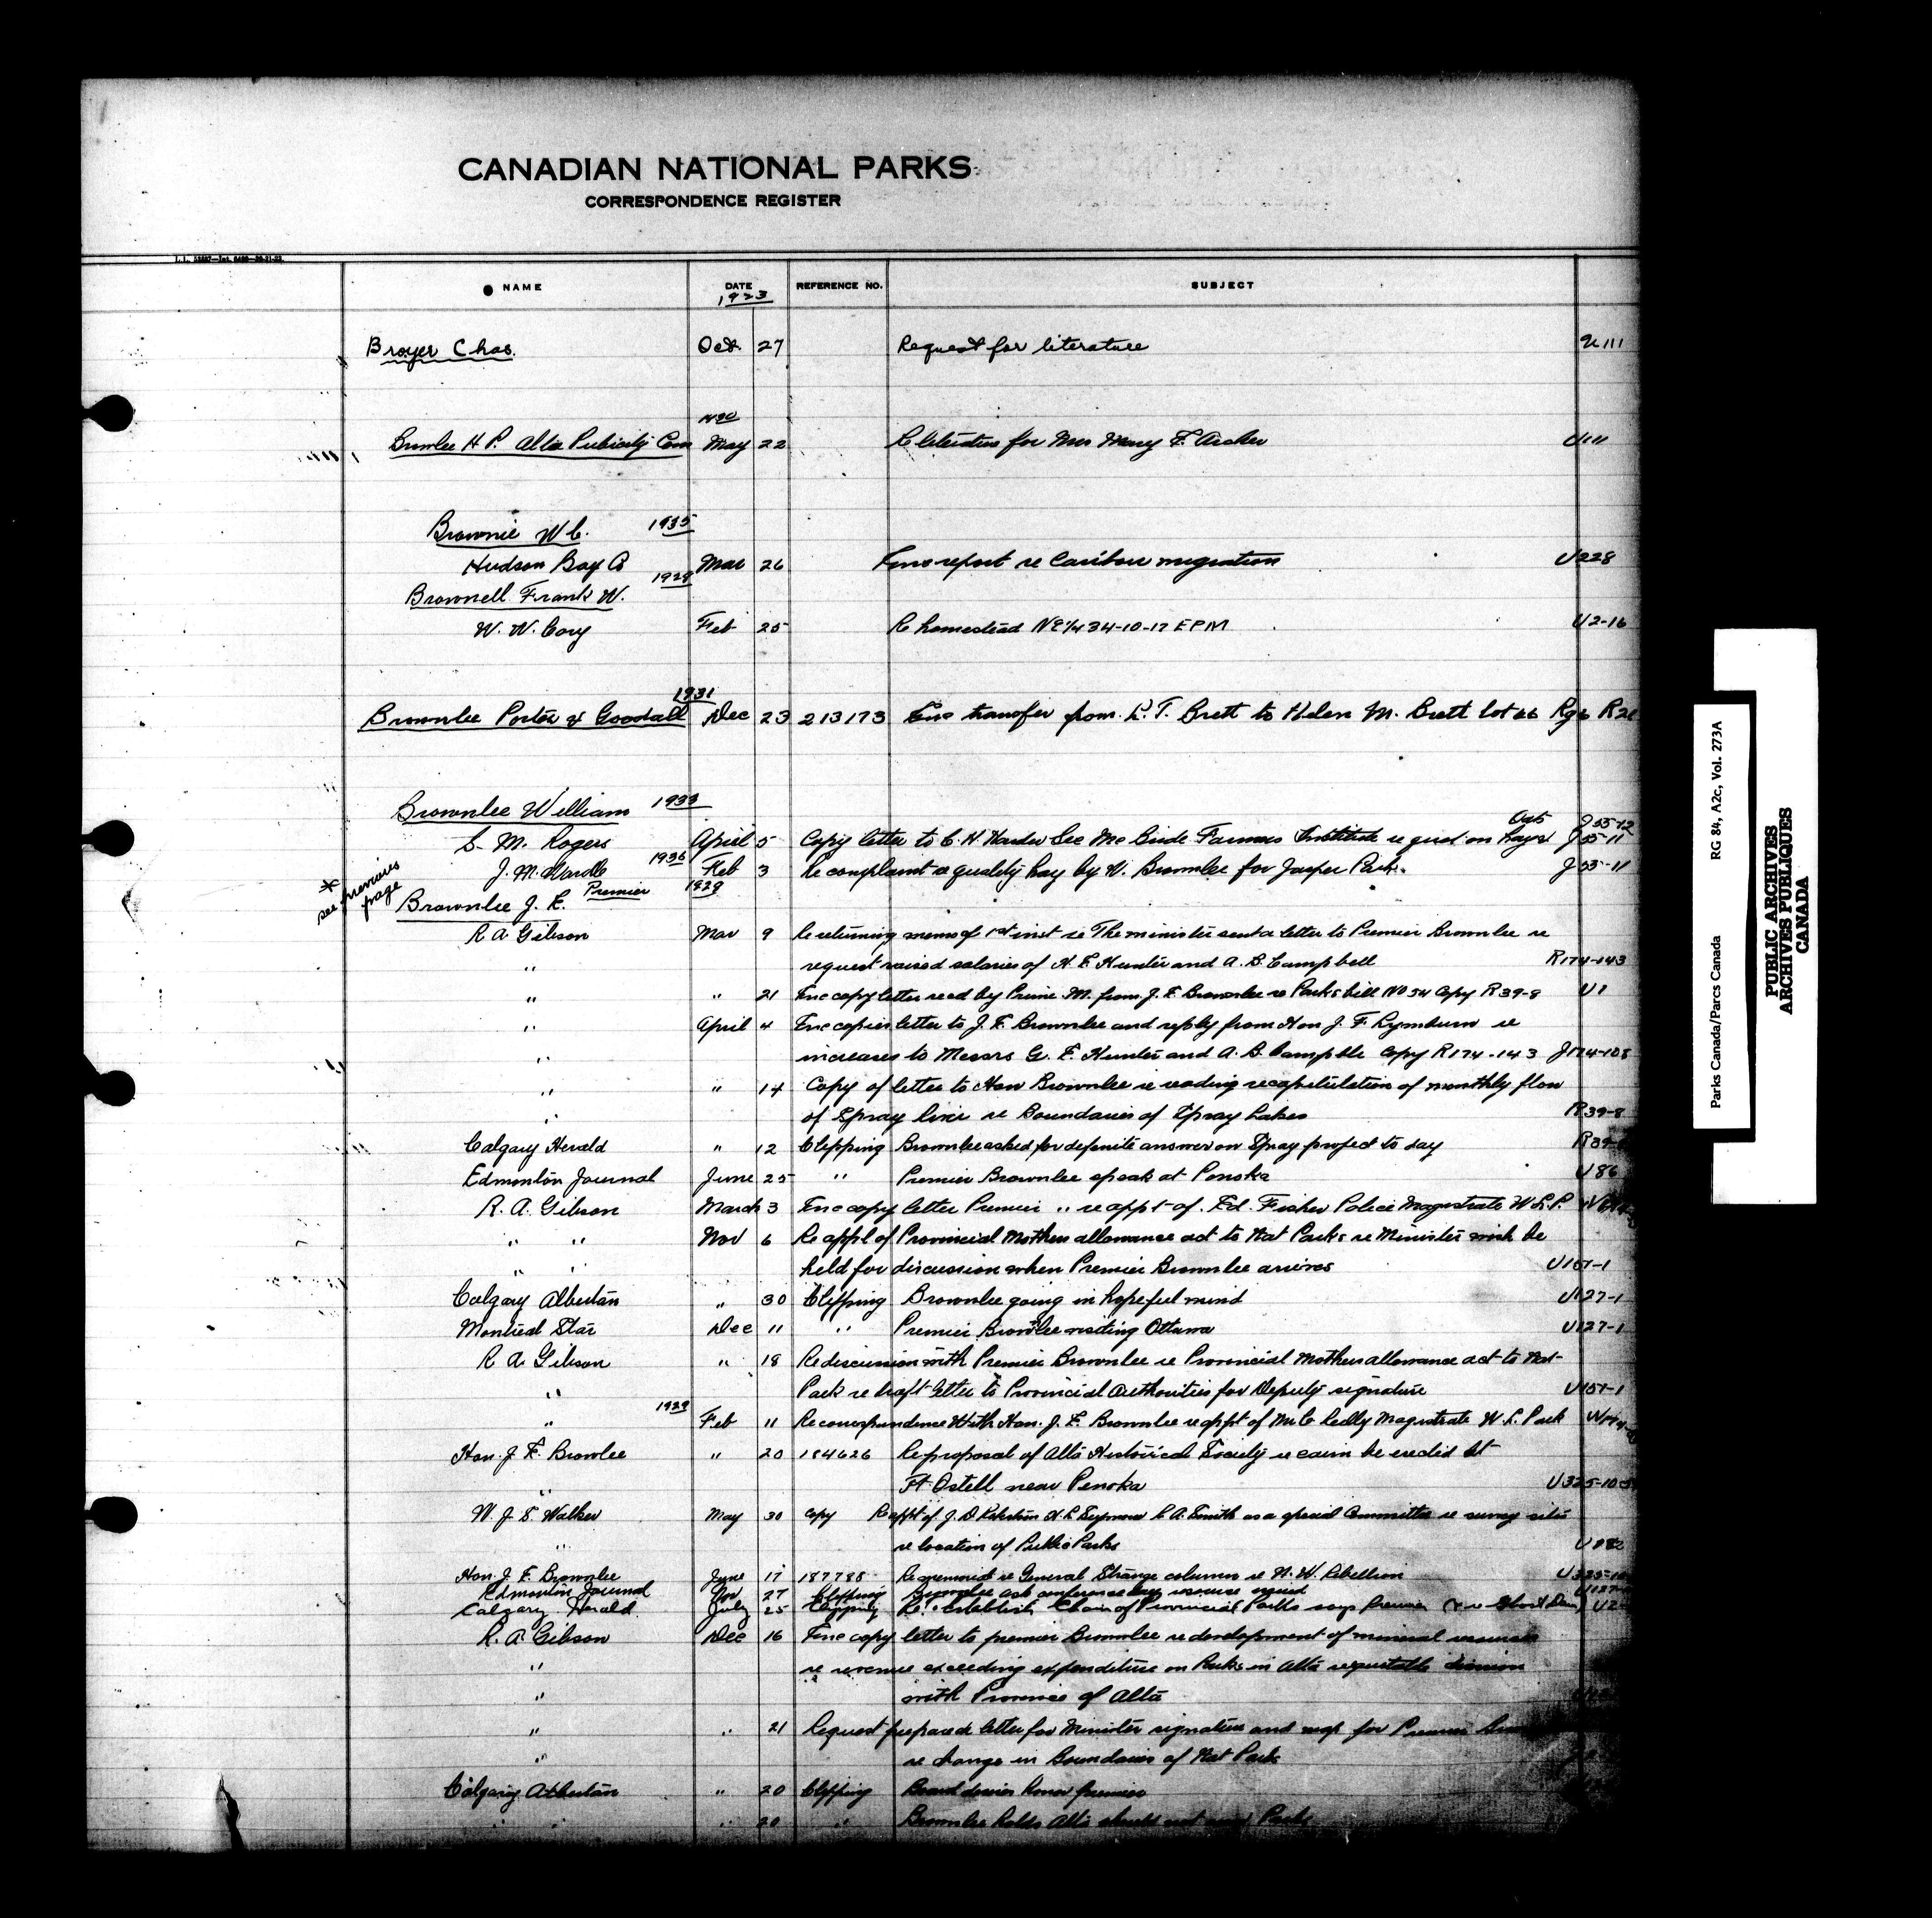 CANADIAN NATIONAL PARKS
CORRESPONDENCE REGISTER
NAME DATE REFERENCE NO. SUBJECT
1923
Broyer Chas. Oct. 27 Request for literature U111
1930
Brownlee H P. Alta Publicity Com May 22 Re literature for Mrs Mary F. Archer U111
Brownie W C. 1935
Hudson Bay Co Mar 26 Enc report re Caribou migration U228
Brownell Frank W. 1929
W. W. Cory Feb 25 Re homestead NE1/4 34-10-17 EPM U2-16
1931
Brownlee Porter & Goodall Dec 23 213173 Enc transfer from R. T. Brett to Helen M. Brett lot 66 Rg 6 R21
Brownlee William 1933
S. M. Rogers April 5 Copy letter to C. H. Harder Sec McBride Farmers Institute re quot on Oats Hays J55-12 J55-11
J. M. Wardle 1936 Feb 3 Re complaint re quality hay by W. Brownlee for Jasper Park. J55-11
* see previous page
Brownlee J. E. Premier 1929
R A Gibson Mar 9 Re returning memo of 1st inst re The minister sent a letter to Premier Brownlee re
" request raised salaries of H. E. Hunter and A. B. Campbell R174-143
" " 21 Enc copy letter recd by Prime M. from J. E. Brownlee re Parks bill No 54 Copy R39-8 U1
" April 4 Enc copies letter to J. E. Brownlee and reply from Hon J. F. Lymburn re
" increases to Messrs G. E. Hunter and A. B. Campble Copy R174-143 J174-108
" " 14 Copy of letter to Hon Brownlee re reading recapitulation of monthly flow
" of Spray river re Boundaries of Spray Lakes R39-8
Calgary Herald " 12 Clipping Brownlee asked for definite answer on Spray project to day R39-8
Edmonton Journal June 25 " Premier Brownlee speak at Ponoka U86
R. A. Gibson March 3 Enc copy letter Premier " re appt of. Ed. Fisher Police Magistrate W.L.P.
" " Nov 6 Re appl of Provincial Mothers allowance act to Nat Parks re Minister wish be
" " held for discussion when Premier Brownlee arrives U157-1
Calgary Albertan " 30 Clipping Brownlee going in hopeful mind U127-1
Montreal Star Dec 11 " Premier Brownlee visiting Ottawa U127-1
R A Gibson " 18 Re discussion with Premier Brownlee re Provincial Mothers allowance act to Nat-
" Park re draft letter to Provincial Authorities for Deputy signature U157-1
" 1929 Feb 11 Re correspondence with Hon. J. E. Brownlee re appt of Mr C Reilly Magistrate W. L. Park
Hon. J E. Brownlee " 20 184626 Re proposal of Alta Historical Society re cairn be erected at
" Ft Ostell near Penoka U325-10
W. J. S. Walker May 30 copy Re appt of J. D. Robertson H. L. Seymour R. A. Smith as a special Committee re survey sites
" re location of Public Parks
Hon. J. E. Brownlee June 17 187785 Re memorial re General Strange column re N. W. Rebellion
Edmonton Journal Nov 27 Clipping Brownlee ask conference
Calgary Herald July 25 Clipping Re establish Chain of Provincial Parks says Premier
R. A. Gibson Dec 16 Enc copy letter to premier Brownlee re development of mineral resources
" re revenue exceeding expenditure on Parks in Alta
" with Province of Alta
" " 21 Request prepared letter for Minister signature and map for Premier
" re change in Boundaries of Nat Park
Calgary Albertan " 20 Clipping
" " " 20 " Brownlee holds Alta should not Parks
Parks Canada/Parcs Canada RG 84, A2c, Vol. 273A
PUBLIC ARCHIVES
ARCHIVES PUBLIQUES
CANADA